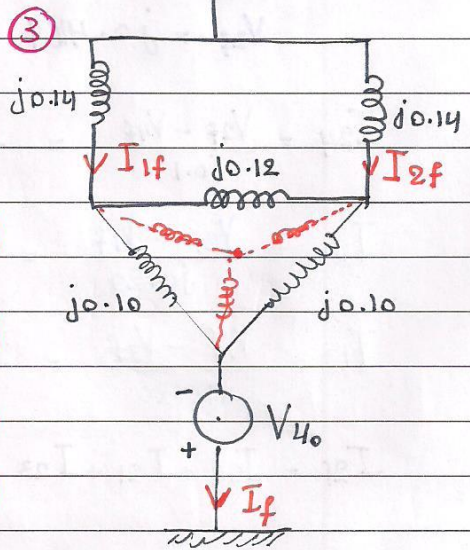 3
j0.14
j0.14
I1f
j0.12
I2f
j0.10
j0.10
-
V40
+
If